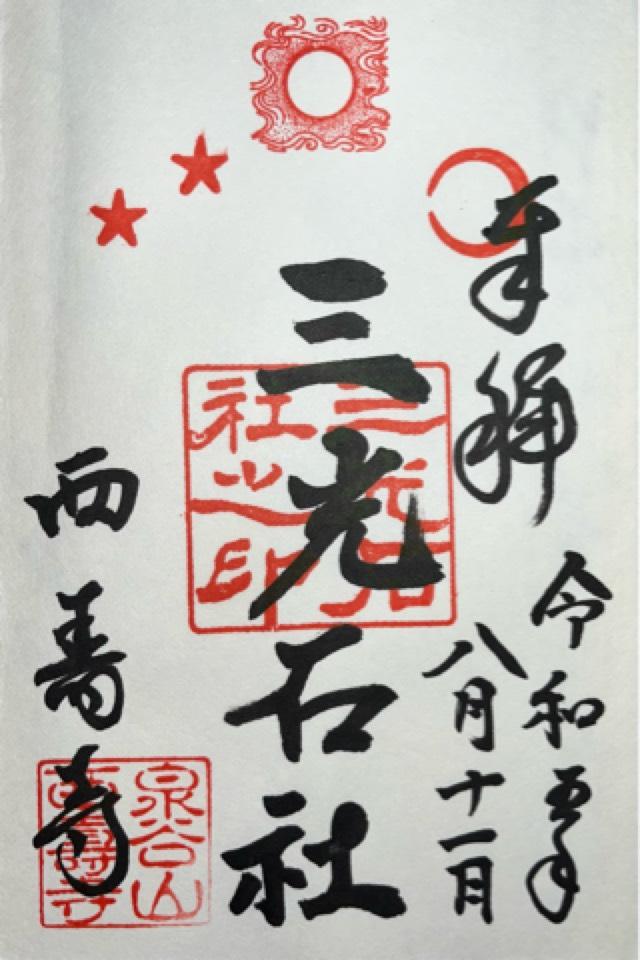 奉拝
令和五年
八月十一日
三光石社
三光石
社之印
西壽寺
泉谷山
西壽寺